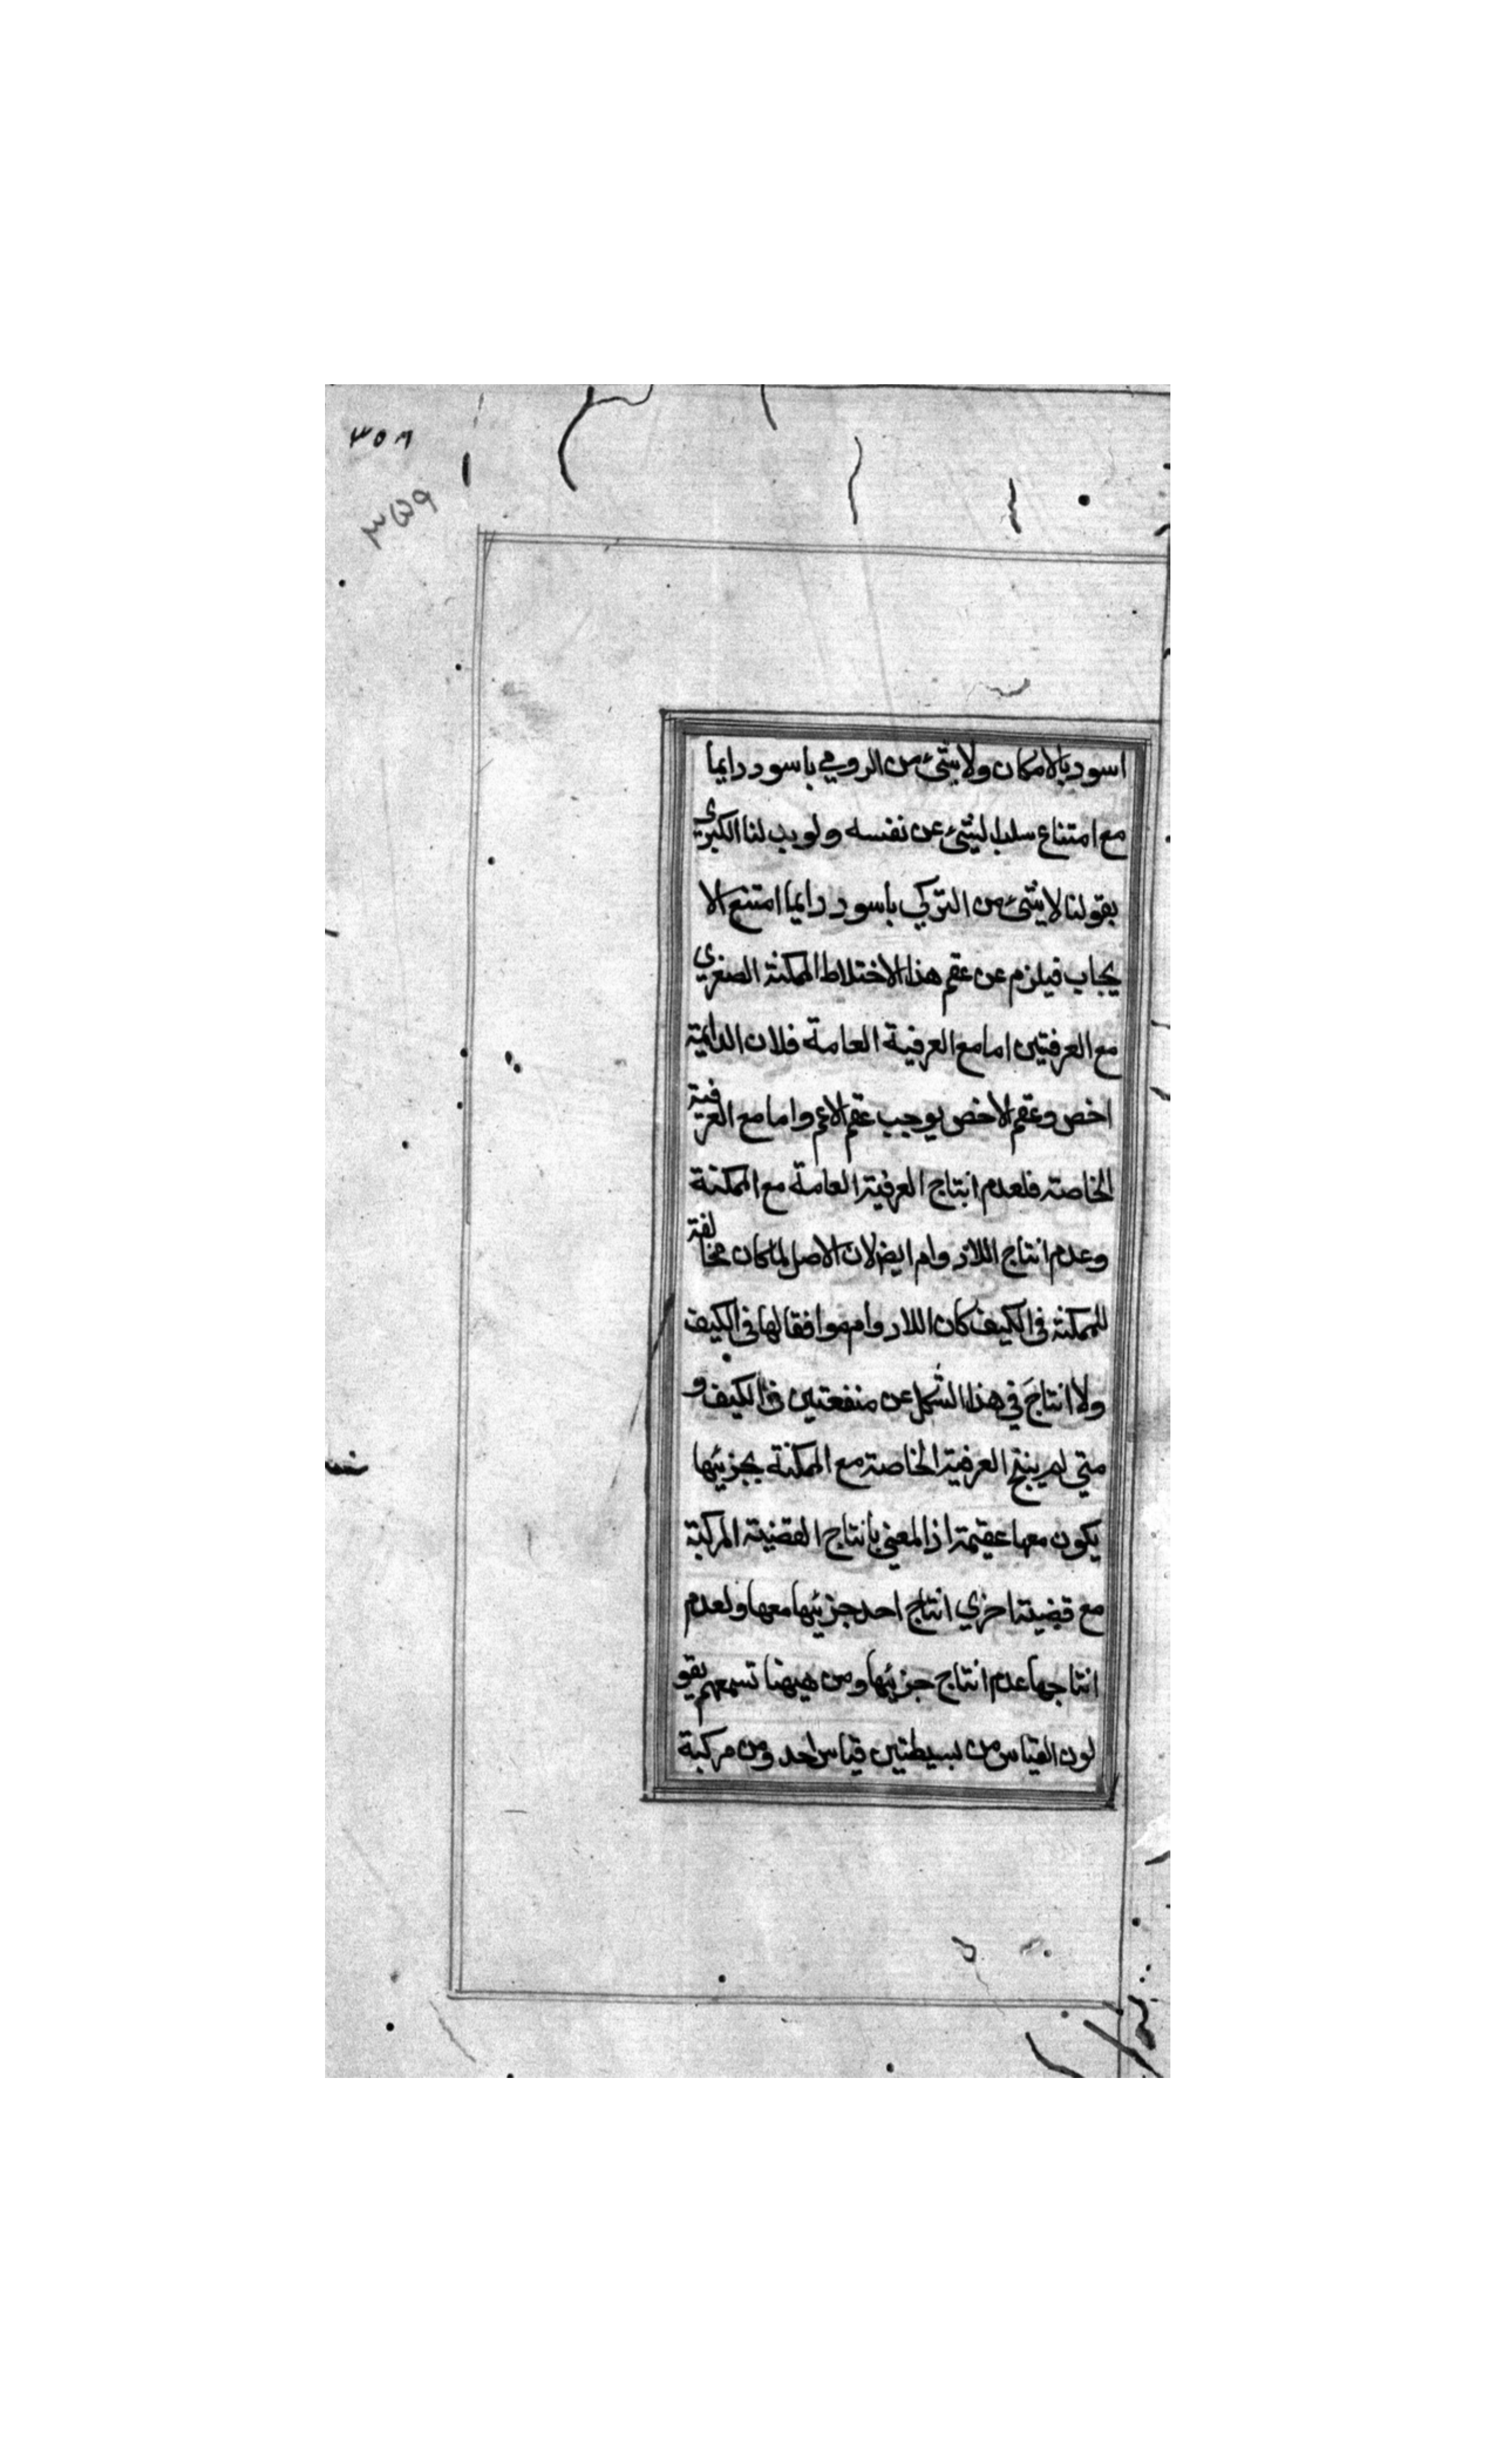 ٣٥٨
٣٥٩
اسود بالامكان ولا شئ من الرومي باسود دايما
مع امتناع سلب الشئ عن نفسه ولو بدلنا الكبري
بقولنا لا شئ من التركي باسود دايما امتنع الا
يجاب فيلزم عن عقم هذا الاختلاط الممكنة الصغري
مع العرفيتين اما مع العرفية العامة فلان الدايمة
اخص وعقم الاخص يوجب عقم الاعم واما مع العرفية
الخاصة فلعدم انتاج العرفية العامة مع الممكنة
وعدم انتاج اللادوام ايضا لان الاصل لما كان مخالفة
للممكنة في الكيف كان اللادوام موافقا لها في الكيف
ولا انتاج في هذا الشكل عن منفعتين في الكيف و
متي لم ينتج العرفية الخاصة مع الممكنة بجزئيها
يكون معها عقيمة اذ المعني بانتاج القضية المركبة
مع قضية اخري انتاج احد جزئيها معها ولعدم
انتاجها عدم انتاج جزئيها ومن ههنا تسمعهم يقو
لون القياس من بسيطتين قياس احد ومن مركبة